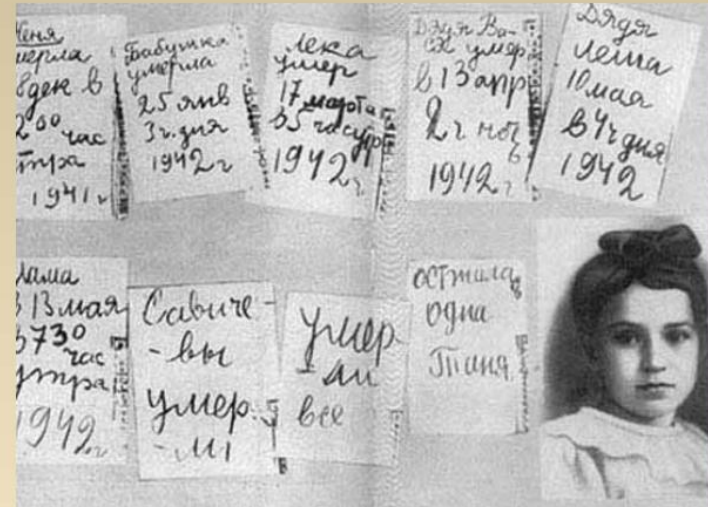 Женя
мерла
8 дек в
2 00 час
утра
1941 г
Бабушка
умерла
25 янв
3 ч. дня
1942 г
Лека
умер
17 марта
в 5 час утр
1942 г
Дядя Ва-
ся умер
в 13 апр
2 ч ноч
1942 г
Дядя
Леша
10 мая
в 4 ч дня
1942
Мама
в 13 мая
в 7 30
час
утра
1942 г
Савиче-
-вы
умер-
-ли
умер
-ли
все
осталась
одна
Таня